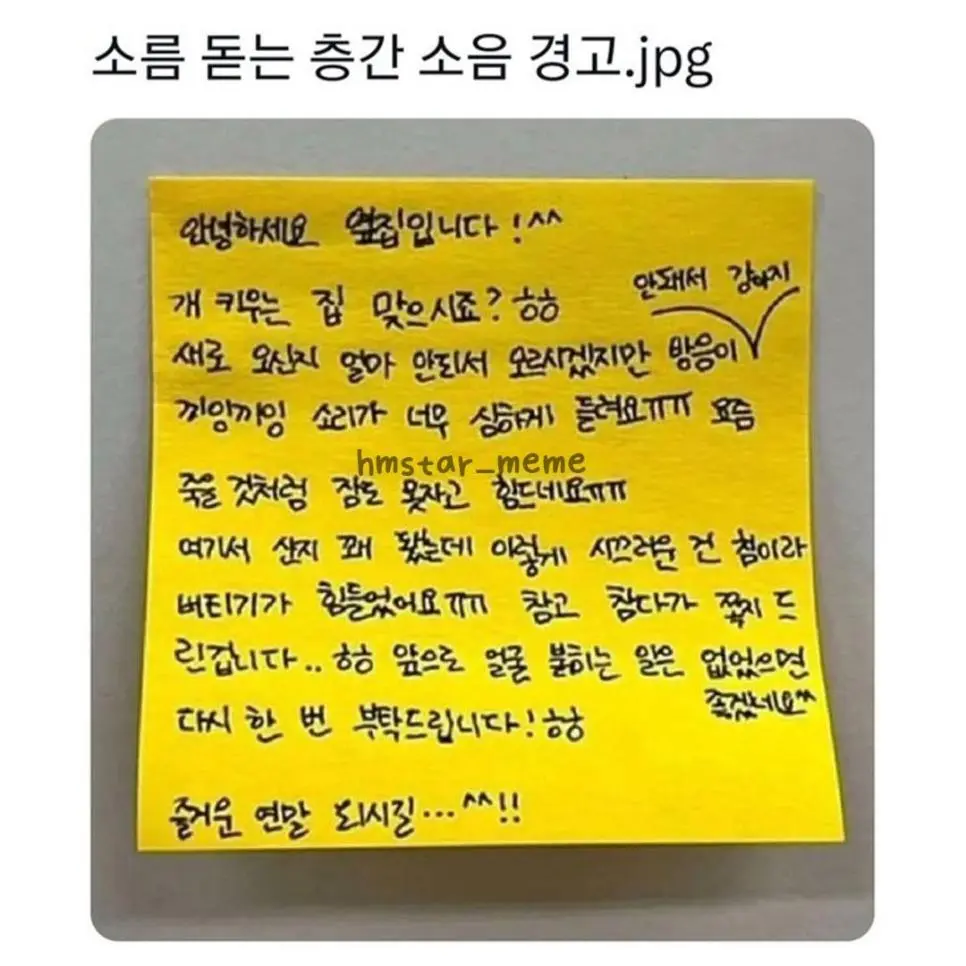 소름 돋는 층간 소음 경고.jpg
안녕하세요 옆집입니다!^^
개 키우는 집 맞으시죠? ㅎㅎ
안돼서 강아지
새로 오신지 얼마 안되서 모르시겠지만 방음이
끼잉끼잉 소리가 너무 심하게 들려요ㅠㅠ 요즘
hmstar_meme
죽을 것처럼 잠도 못자고 힘드네요ㅠㅠ
여기서 산지 꽤 됐는데 이렇게 시끄러운 건 첨이라
버티기가 힘들었어요ㅠㅠ 참고 참다가 쪽지 드
린겁니다.. ㅎㅎ 앞으로 얼굴 붉히는 일은 없었으면
좋겠네요^^
다시 한 번 부탁드립니다!ㅎㅎ
즐거운 연말 되시길...^^!!